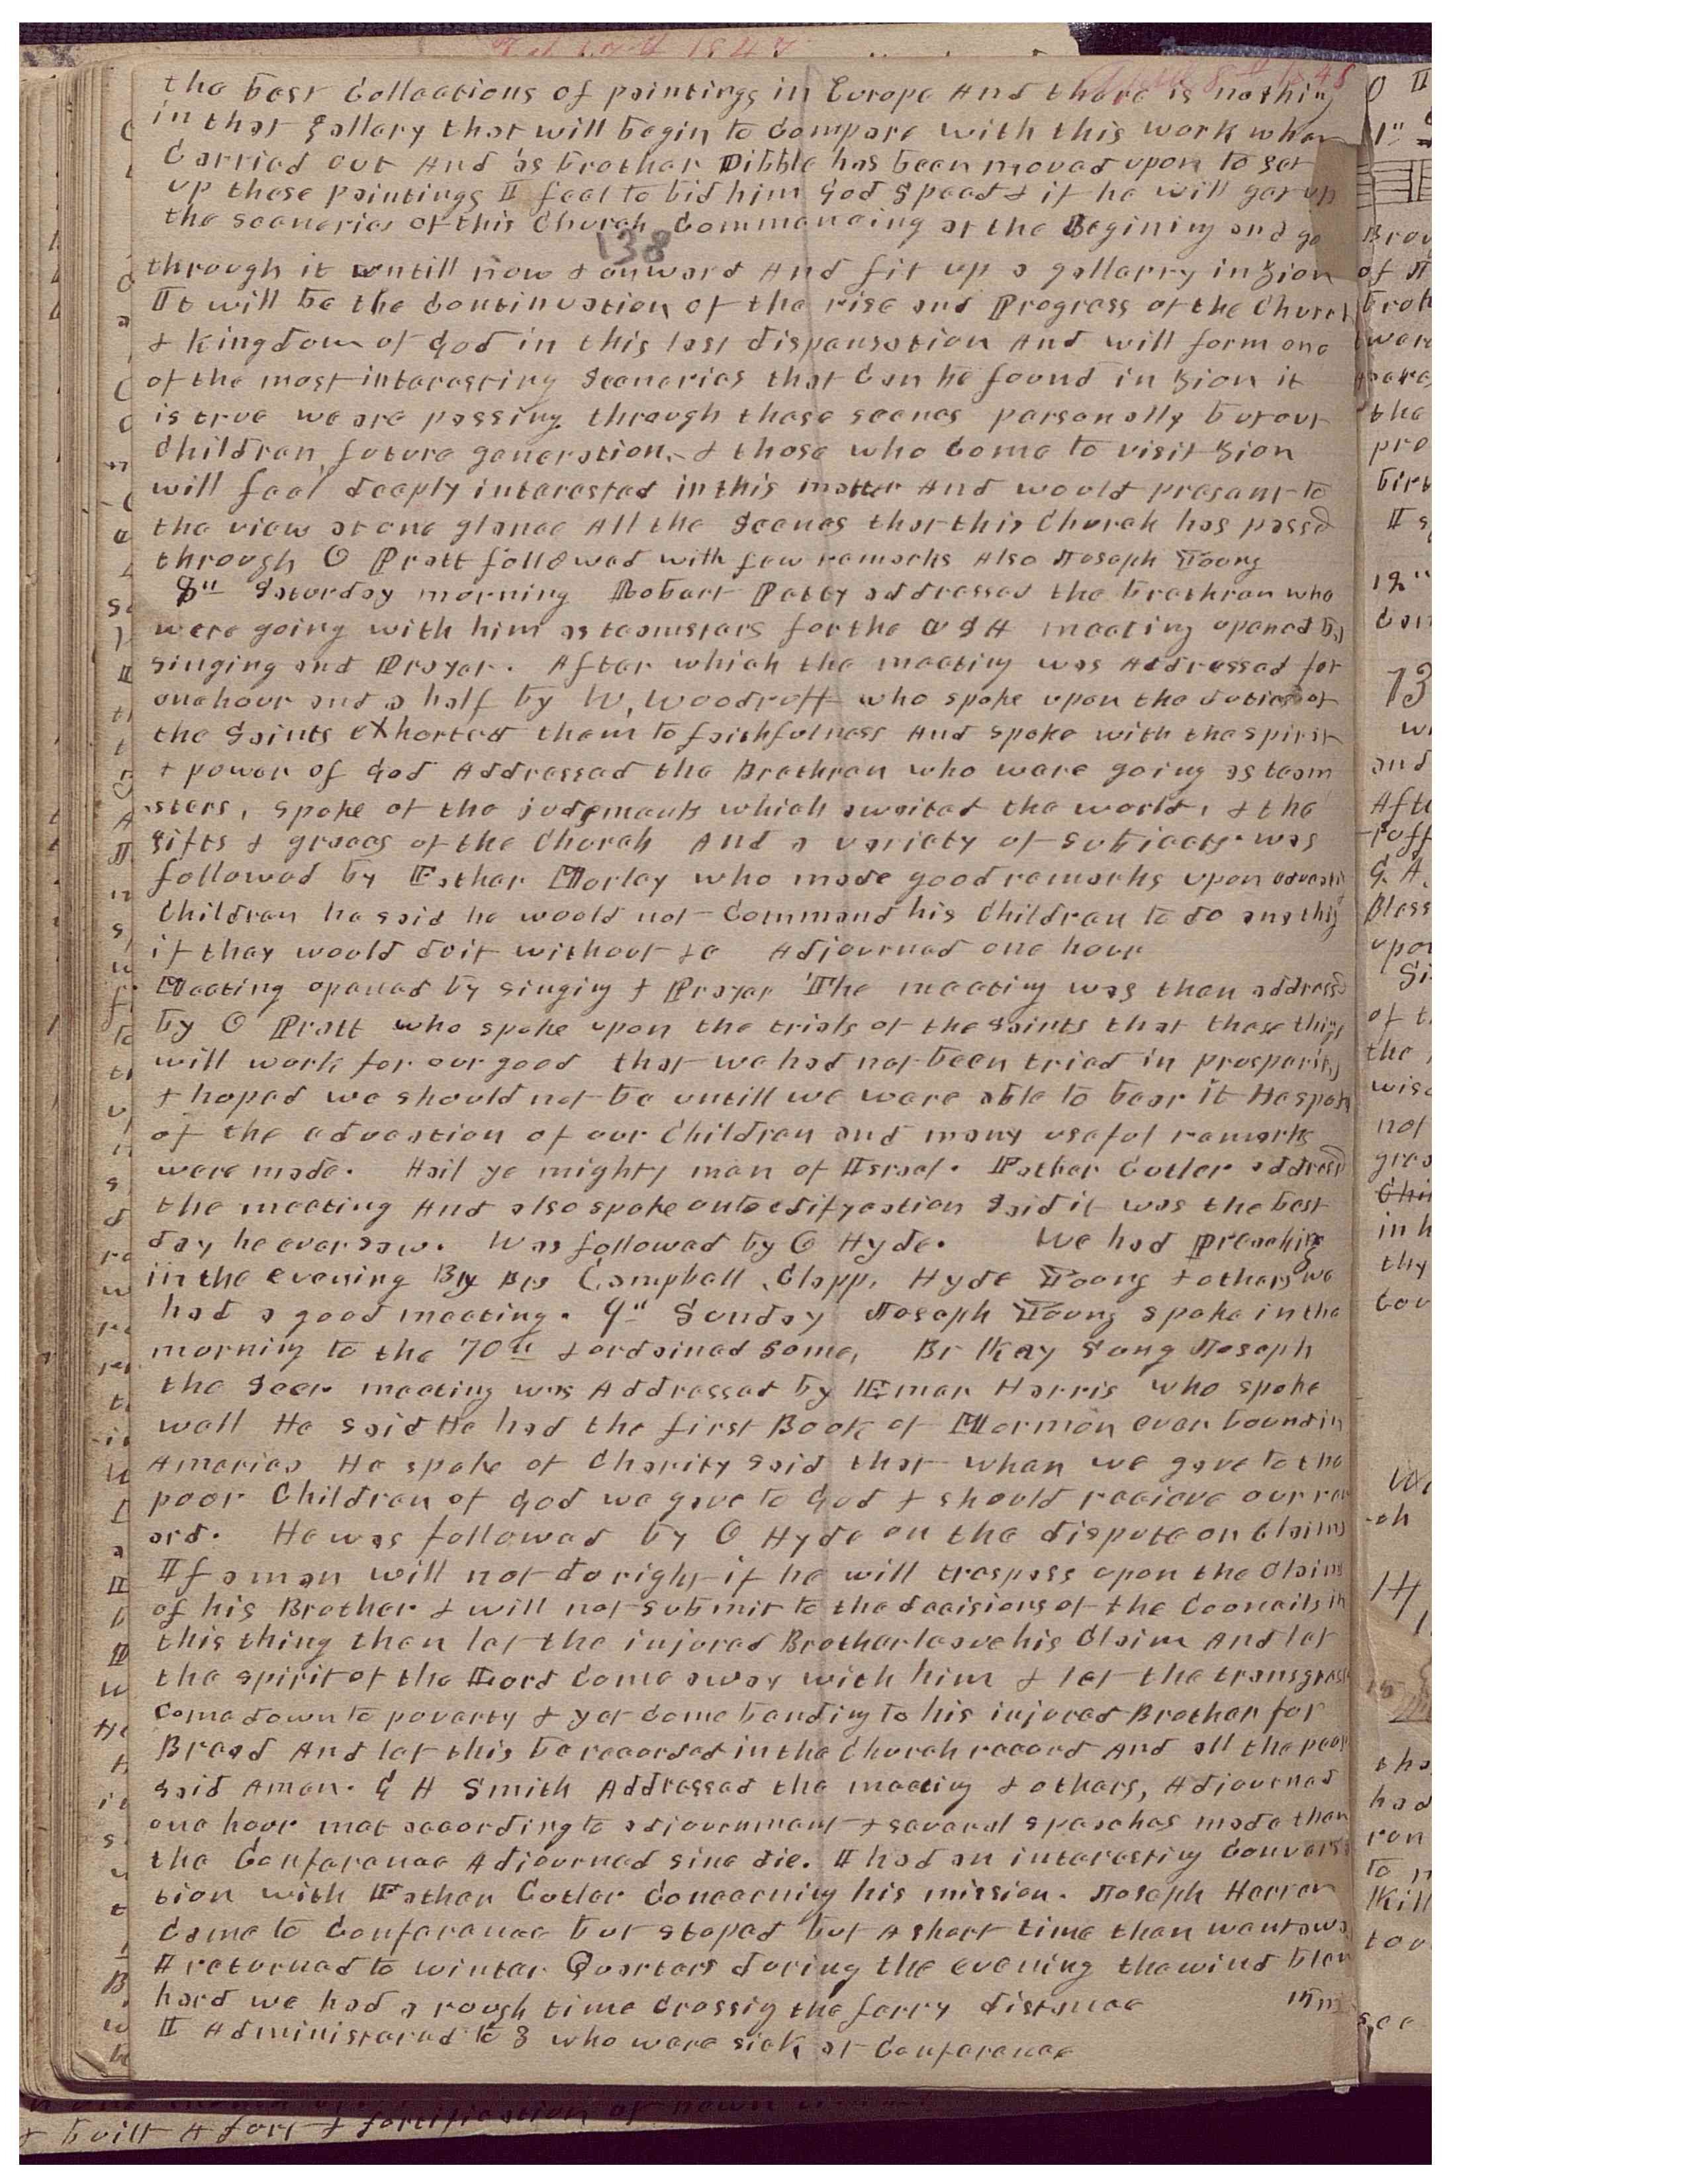 April 8th 1848
the best Collections of paintings in Europe And there is nothing
in that gallery that will begin to Compare with this work when
Carried out And as brother Dibble has been moved upon to get
up these paintings I feel to bid him God speed & if he will get up
the sceneries of this Church Commencing at the Begining and go
138
through it untill now & onward And fit up a gallarry in Zion
It will be the Continuation of the rise and Progress of the Church
& kingdom of God in this last dispensation And will form one
of the most interesting Sceneries that Can be found in Zion it
is true we are passing through these scenes personally but our
Children, future generation, & those who Come to visit Zion
will feel deeply interested in this matter And would present to
the view at one glance All the Scenes that this Church has passed
through O Pratt followed with few remarks Also Joseph Young
8th Saturday morning Robert Petty addressed the brethren who
were going with him as teamsters for the U S A meeting opened by
singing and Prayer. After which the meeting was Addressed for
one hour and a half by W, Woodruff who spoke upon the duties of
the Saints exhorted them to faithfulness And spoke with the spirit
& power of God Addressed the Brethren who were going as team
sters, spoke of the judgments which awaited the world, & the
gifts & graces of the Church And a variety of Subjects. was
followed by Father Morley who made good remarks upon educati
Children he said he would not Command his Children to do any thing
if they would do it without &c Adjourned one hour
Meeting opened by singing & Prayer The meeting was then addressed
by O Pratt who spoke upon the trials of the saints that these things
will work for our good that we had not been tried in prosperity
& hoped we should not be untill we were able to bear it He spoke
of the education of our Children and many useful remarks
were made. Hail ye mighty men of Israel. Father Cutler addressed
the meeting And also spoke unto edifycation Said it was the best
day he ever saw. Was followed by O Hyde. We had Preaching
in the evening By Brs Campbell, Clapp, Hyde Young & others we
had a good meeting. 9th Sunday Joseph Young spoke in the
morning to the 70th & ordained some, Br Kay Sung Joseph
the Seer meeting was Addressed by Emer Harris who spoke
well He said He had the first Book of Mormon ever bound in
America He spoke of Charity said that when we gave to the
poor Children of God we gave to God & should recieve our rew
ard. He was followed by O Hyde on the dispute on Claims
If a man will not do right if he will trespass upon the Claims
of his Brother & will not submit to the decisions of the Councils in
this thing then let the injured Brother leave his Claim And let
the spirit of the Lord Come away with him & let the transgress
Come down to poverty & yet Come bending to his injured Brother for
Bread And let this be recorded in the Church record And all the peop
said Amen. G A Smith Addressed the meeting & others, Adjourned
one hour met according to adjournment & several speeches made then
the Conference Adjourned sine die. I had an interesting Convers
tion with Father Cutler Concerning his mission. Joseph
Came to Conference but stoped but A short time then went away
I returned to winter Quarters during the evening the wind blew
hard we had a rough time Crossig the ferry distance 15 m
I Administered to 3 who were sick at Conference
& built A fort & fortification of